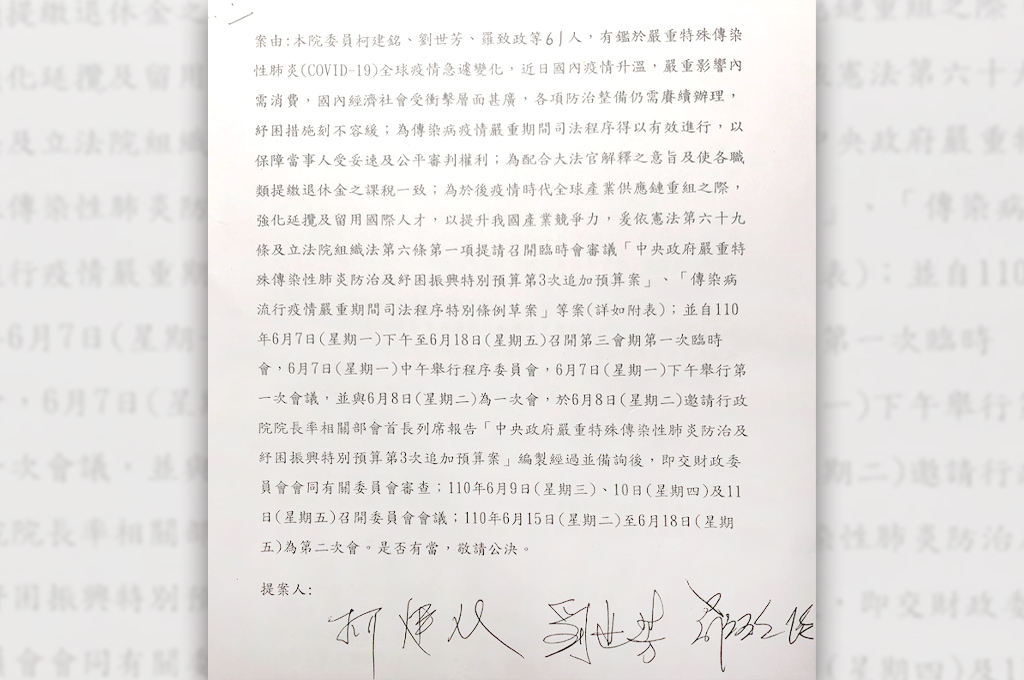 案由:本院委員柯建銘、劉世芳、羅致政等61人，有鑑於嚴重特殊傳染
性肺炎(COVID-19)全球疫情急遽變化，近日國內疫情升溫，嚴重影響內
需消費，國內經濟社會受衝擊層面甚廣，各項防治整備仍需賡續辦理，
紓困措施刻不容緩；為傳染病疫情嚴重期間司法程序得以有效進行，以
保障當事人受妥速及公平審判權利；為配合大法官解釋之意旨及使各職
類提繳退休金之課稅一致；為於後疫情時代全球產業供應鏈重組之際，
強化延攬及留用國際人才，以提升我國產業競爭力，爰依憲法第六十九
條及立法院組織法第六條第一項提請召開臨時會審議「中央政府嚴重特
殊傳染性肺炎防治及紓困振興特別預算第3次追加預算案」、「傳染病
流行疫情嚴重期間司法程序特別條例草案」等案(詳如附表)；並自110
年6月7日(星期一)下午至6月18日(星期五)召開第三會期第一次臨時
會，6月7日(星期一)中午舉行程序委員會，6月7日(星期一)下午舉行第
一次會議，並與6月8日(星期二)為一次會，於6月8日(星期二)邀請行政
院院長率相關部會首長列席報告「中央政府嚴重特殊傳染性肺炎防治及
紓困振興特別預算第3次追加預算案」編製經過並備詢後，即交財政委
員會會同有關委員會審查；110年6月9日(星期三)、10日(星期四)及11
日(星期五)召開委員會會議；110年6月15日(星期二)至6月18日(星期
五)為第二次會。是否有當，敬請公決。
提案人:
柯建銘 劉世芳 羅致政